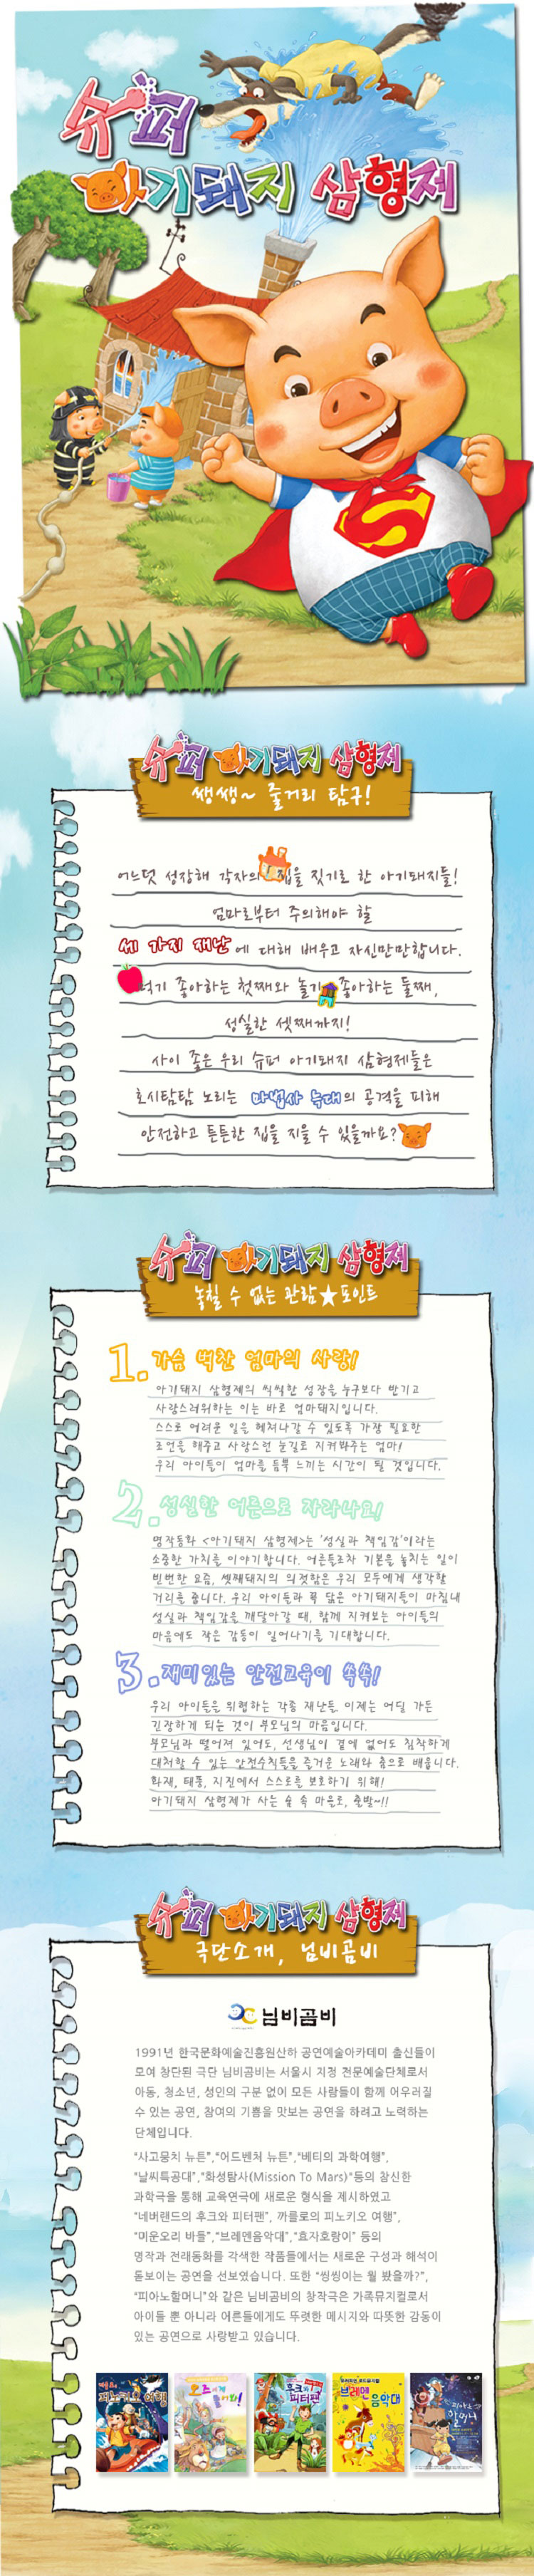 슈퍼
아기돼지 삼형제
슈퍼 아기돼지 삼형제
쌩쌩~ 줄거리 탐구!
어느덧 성장해 각자의 집을 짓기로 한 아기돼지들!
엄마로부터 주의해야 할
세 가지 재난에 대해 배우고 자신만만합니다.
먹기 좋아하는 첫째와 놀기 좋아하는 둘째,
성실한 셋째까지!
사이 좋은 우리 슈퍼 아기돼지 삼형제들은
호시탐탐 노리는 마법사 늑대의 공격을 피해
안전하고 튼튼한 집을 지을 수 있을까요?
슈퍼 아기돼지 삼형제
놓칠 수 없는 관람★포인트
1. 가슴 벅찬 엄마의 사랑!
아기돼지 삼형제의 씩씩한 성장을 누구보다 반기고
사랑스러워하는 이는 바로 엄마돼지입니다.
스스로 어려운 일을 헤쳐나갈 수 있도록 가장 필요한
조언을 해주고 사랑스런 눈길로 지켜봐주는 엄마!
우리 아이들이 엄마를 듬뿍 느끼는 시간이 될 것입니다.
2. 성실한 어른으로 자라나요!
명작동화 <아기돼지 삼형제>는 '성실과 책임감'이라는
소중한 가치를 이야기합니다. 어른들조차 기본을 놓치는 일이
빈번한 요즘, 셋째돼지의 의젓함은 우리 모두에게 생각할
거리를 줍니다. 우리 아이들과 꼭 닮은 아기돼지들이 마침내
성실과 책임감을 깨달아갈 때, 함께 지켜보는 아이들의
마음에도 작은 감동이 일어나기를 기대합니다.
3. 재미있는 안전교육이 쏙쏙!
우리 아이들을 위협하는 각종 재난들 이제는 어딜 가든
긴장하게 되는 것이 부모님의 마음입니다.
부모님과 떨어져 있어도, 선생님이 곁에 없어도 침착하게
대처할 수 있는 안전수칙들을 즐거운 노래와 춤으로 배웁니다.
화재, 태풍, 지진에서 스스로를 보호하기 위해!
아기돼지 삼형제가 사는 숲 속 마을로, 출발~!!
슈퍼 아기돼지 삼형제
극단소개, 님비곰비
님비곰비
1991년 한국문화예술진흥원산하 공연예술아카데미 출신들이
모여 창단된 극단 님비곰비는 서울시 지정 전문예술단체로서
아동, 청소년, 성인의 구분 없이 모든 사람들이 함께 어우러질
수 있는 공연, 참여의 기쁨을 맛보는 공연을 하려고 노력하는
단체입니다.
"사고뭉치 뉴튼","어드벤처 뉴튼","베티의 과학여행",
"날씨특공대","화성탐사(Mission To Mars)"등의 참신한
과학극을 통해 교육연극에 새로운 형식을 제시하였고
"네버랜드의 후크와 피터팬", 까를로의 피노키오 여행",
"미운오리 바들","브레멘음악대","효자호랑이" 등의
명작과 전래동화를 각색한 작품들에서는 새로운 구성과 해석이
돋보이는 공연을 선보였습니다. 또한 "씽씽이는 뭘 봤을까?",
"피아노할머니"와 같은 님비곰비의 창작극은 가족뮤지컬로서
아이들 뿐 아니라 어른들에게도 뚜렷한 메시지와 따뜻한 감동이
있는 공연으로 사랑받고 있습니다.
피노키오 여행
오즈
후크와 피터팬
브레멘 음악대
피아노 할머니